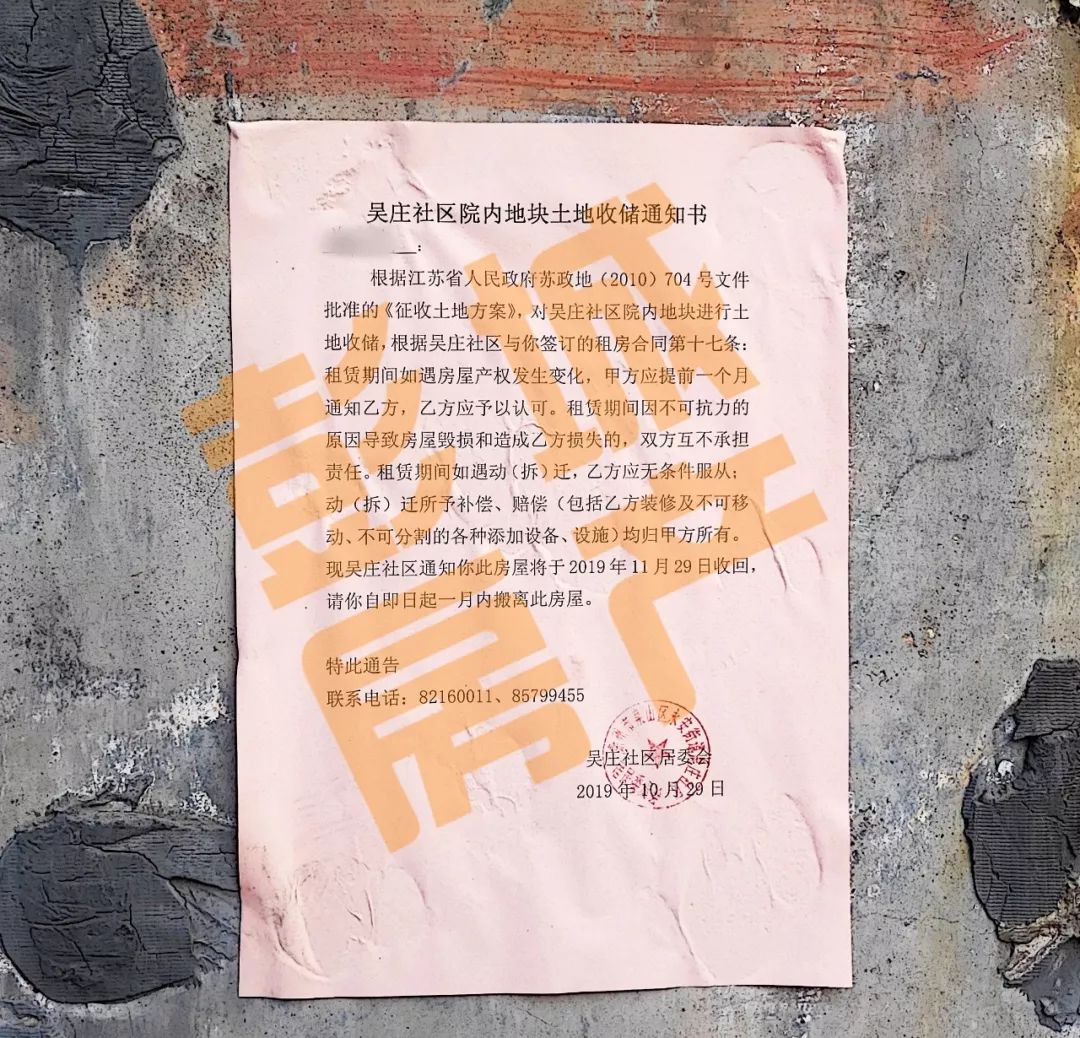 吴庄社区院内地块土地收储通知书
：
根据江苏省人民政府苏政地（2010）704 号文件
批准的《征收土地方案》，对吴庄社区院内地块进行土
地收储，根据吴庄社区与你签订的租房合同第十七条：
租赁期间如遇房屋产权发生变化，甲方应提前一个月
通知乙方，乙方应予以认可。租赁期间因不可抗力的
原因导致房屋毁损和造成乙方损失的，双方互不承担
责任。租赁期间如遇动（拆）迁，乙方应无条件服从；
动（拆）迁所予补偿、赔偿（包括乙方装修及不可移
动、不可分割的各种添加设备、设施）均归甲方所有。
现吴庄社区通知你此房屋将于 2019 年 11 月 29 日收回，
请你自即日起一月内搬离此房屋。
特此通告
联系电话：82160011、85799455
吴庄社区居委会
2019 年 10 月 29 日
彭城
房产